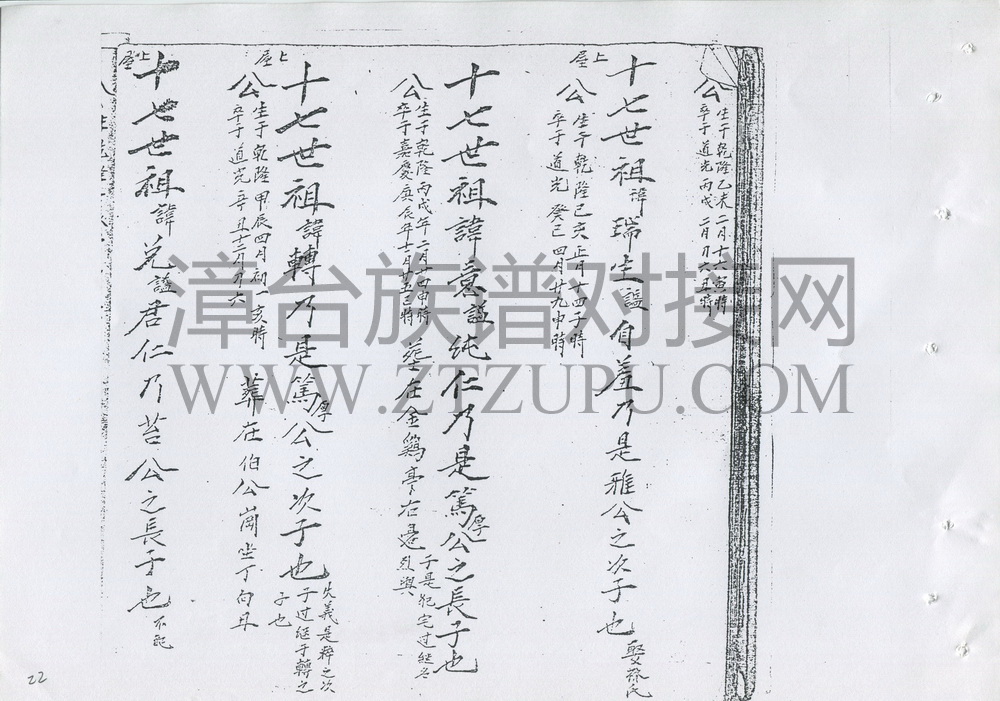 公 生于乾隆乙未二月十六寅時
卒于道光丙戌二月初六丑時
十七世祖諱瑞生謚自羞乃是雅公之次子也 娶蔡氏
上屋
公 生于乾隆己亥正月十四子時
卒于道光癸巳四月廿九申時
十七世祖諱意謚純仁乃是篤厚公之長子也
公 生于乾隆丙戌年二月十四申時
卒于嘉慶庚辰年十一月廿五己時
塟在金鷄亭右邊
于是犯宅过継名
烈與
十七世祖諱轉乃是篤厚公之次子也
失義是粹之次
子过継于轉之
子也
上屋
公 生于乾隆甲辰四月初一亥時
卒于道光辛丑十二月初六
葬在伯公崗坐丁向丑
十七世祖諱兑謚君仁乃苔公之長子也
上屋
漳台族谱对接网
WWW.ZTZUPU.COM
22